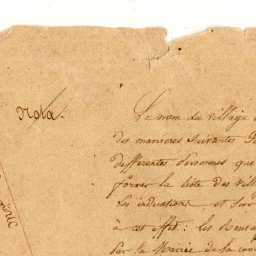 Nota.
Le nom du village
des manieres suivantes
differentes Personnes que
former la liste des vill
les indications et sur
à cet effet: les
sur la Mairie de la com